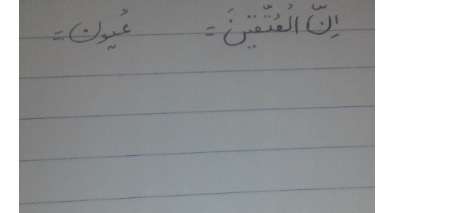 اِنَّ الْمُتَّقِيْنَ = عُيُون =